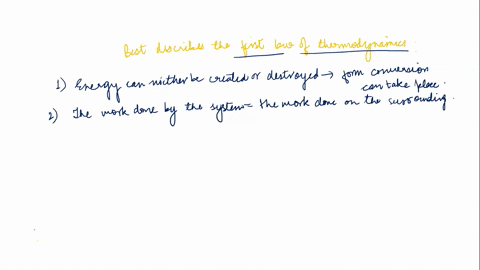 Best describes the first law of thermodynamics.
1) Energy can niether be created or destroyed → form conversion
can take place.
2) The work done by the system = the work done on the surrounding.